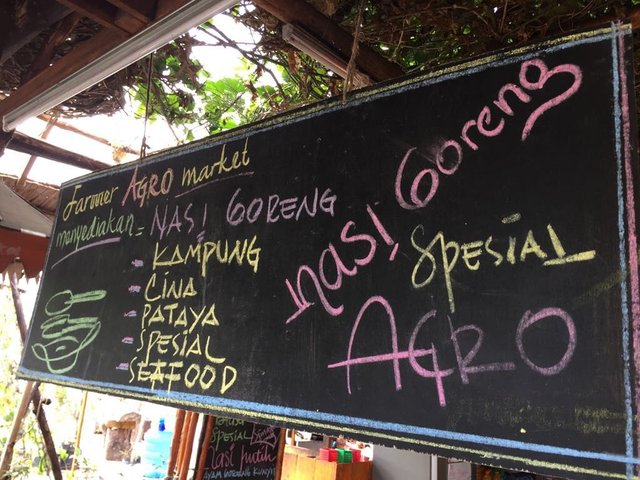 Farmer AGRO market
menyediakan = NASI GORENG
- KAMPUNG
- CINA
- PATAYA
- SPESIAL
- SEAFOOD
NASI Goreng
SPESIAL
AGRO
SPESIAL
Nasi putih